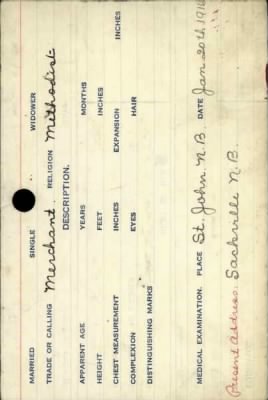 MARRIED SINGLE WIDOWER
TRADE OR CALLING Merchant. RELIGION Methodist
DESCRIPTION.
APPARENT AGE YEARS MONTHS
HEIGHT FEET INCHES
CHEST MEASUREMENT INCHES EXPANSION INCHES
COMPLEXION EYES HAIR
DISTINGUISHING MARKS
MEDICAL EXAMINATION. PLACE St. John N.B DATE Jan 20th 1916
Present Address. Sackville N.B.